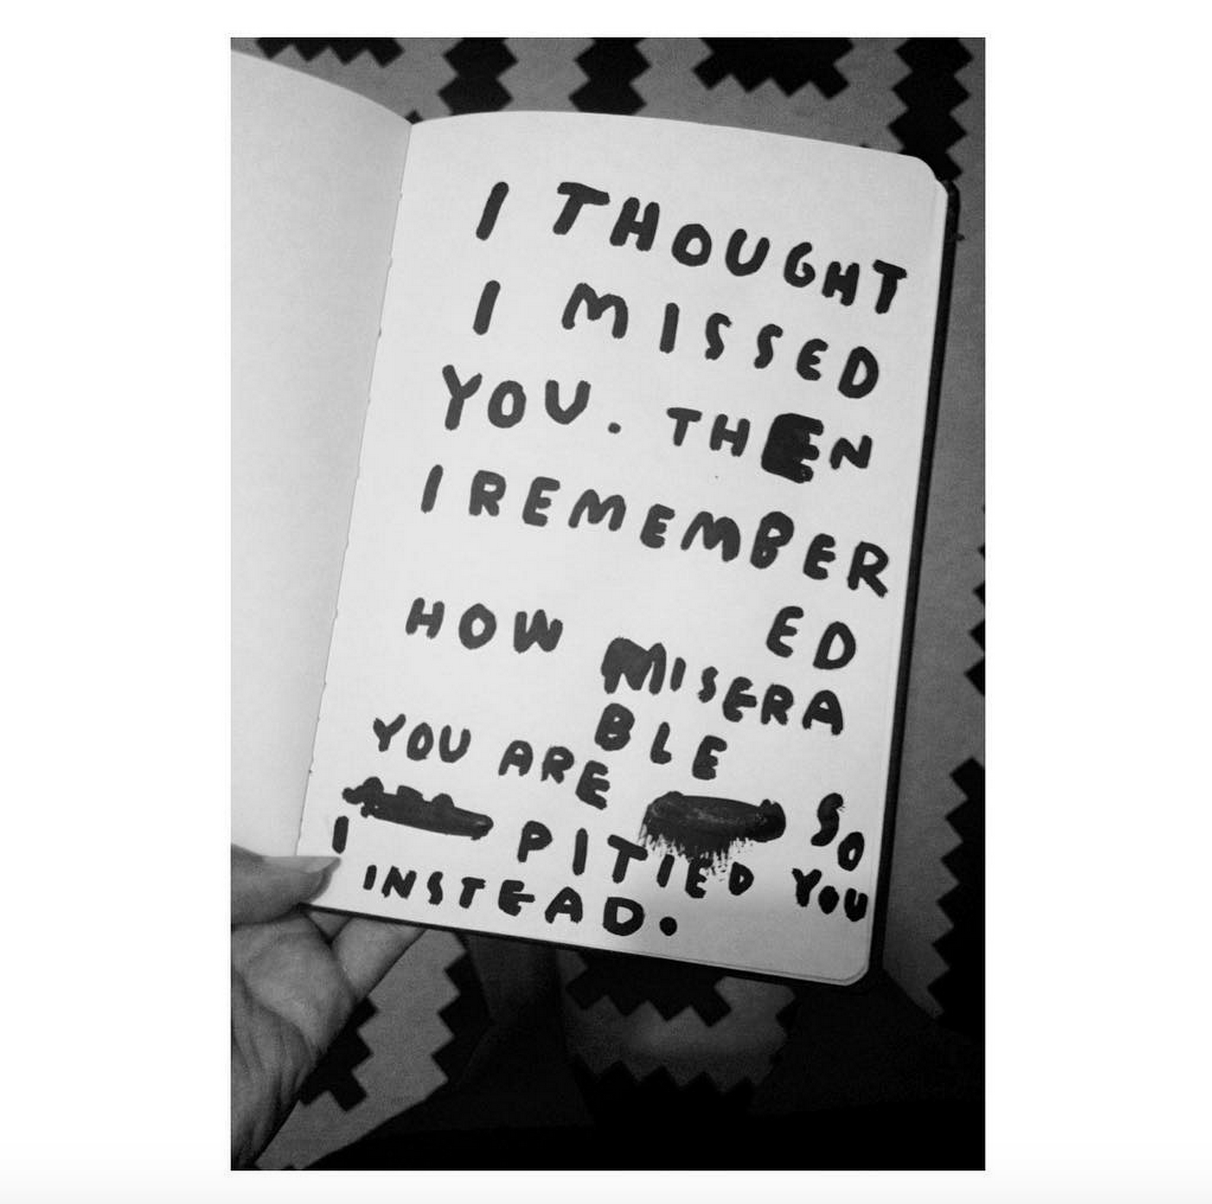 I THOUGHT
I MISSED
YOU. THEN
I REMEMBER
ED
HOW MISERA
BLE
YOU ARE SO
I PITIED YOU
INSTEAD.